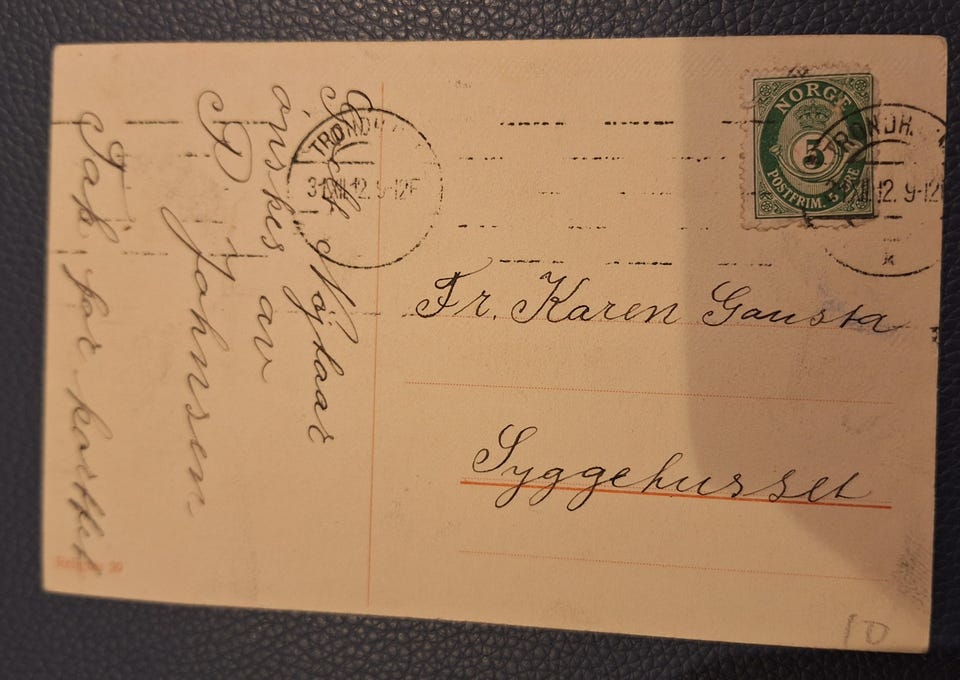 Godt Nÿtaar
önskes av
P Johnsen
Tak for korttet
TRONDH
31 XII 12 9-12F
NORGE
5
POSTFRIM. 5 ØRE
TRONDH
XII.12 9-12
K
Fr. Karen Gausta
Syggehusset
39
10